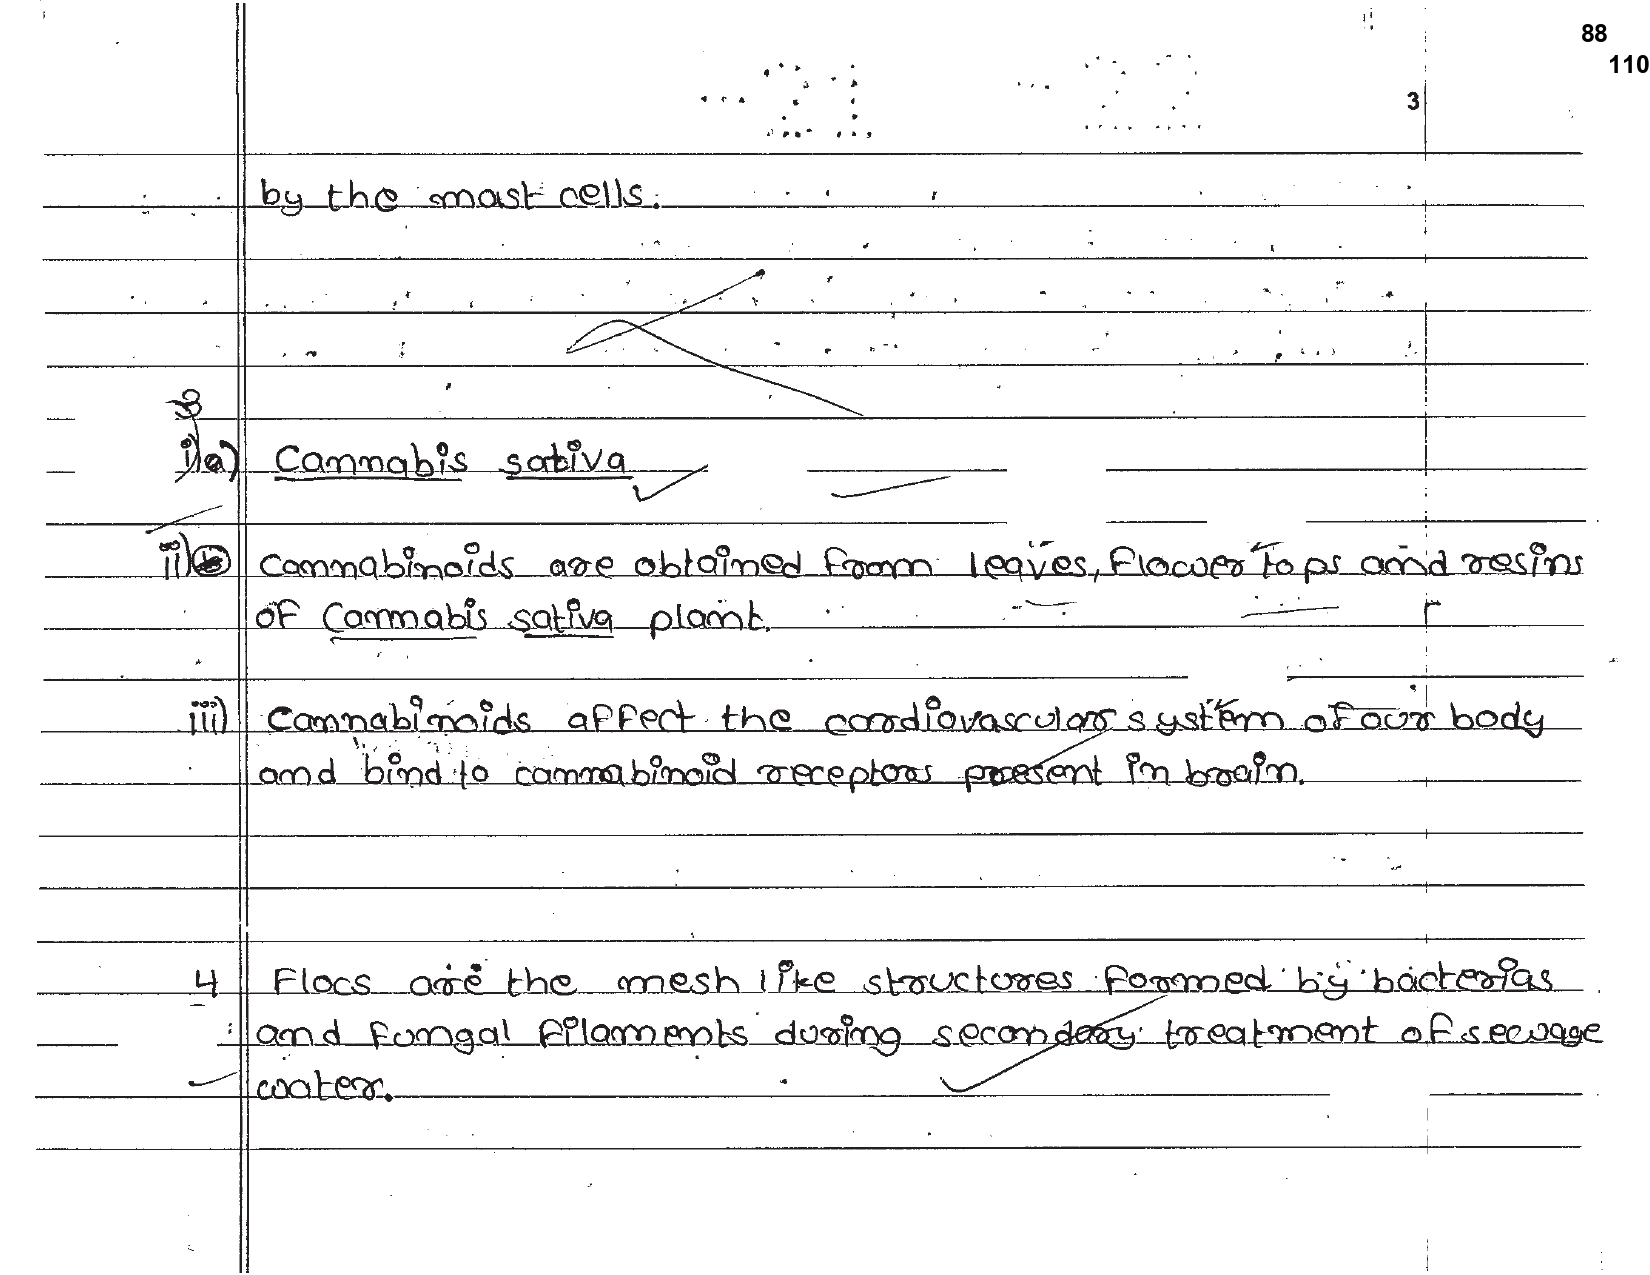 88
110
-21 -22
3
by the mast cells.
3
i)a) Cannabis sativa
ii) Cannabinoids are obtained from leaves, flower tops and resins
of Cannabis sativa plant.
iii) Cannabinoids affect the cardiovascular system of our body
and bind to cannabinoid receptors present in brain.
4 Flocs are the mesh like structures formed by bacterias
and fungal filaments during secondary treatment of sewage
water.